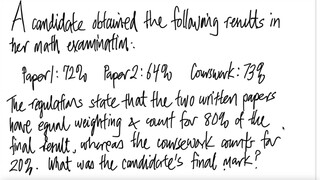 A candidate obtained the following results in
her math examination:
Paper 1: 72% Paper 2: 64% Coursework: 73%
The regulations state that the two written papers
have equal weighting & count for 80% of the
final result, whereas the coursework counts for
20%. What was the candidate's final mark?